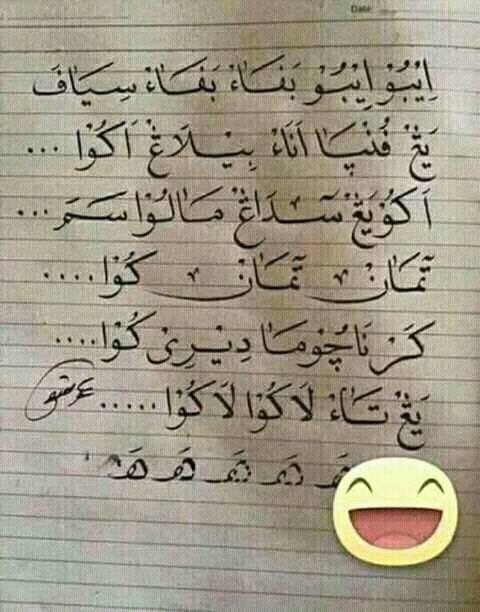 Date:
اِيْبُوْ اِيْبُوْ بَفَاءْ بَفَاءْ سِيَافَ
يَڠْ فُنْيَا اَنَاءْ بِيْلَاڠْ اَكُوْا ...
اَكُوْ يَڠْ سَدَاڠْ مَالُوْا سَمَ ...
تَمَانْ تَمَانْ كُوْا ....
كَرْنَا چُوْمَا دِيْرِىْ كُوْا ....
يَڠْ تَاءْ لَاكُوْا لَاكُوْا .....
هَ هَ هَ هَ هَ هَ